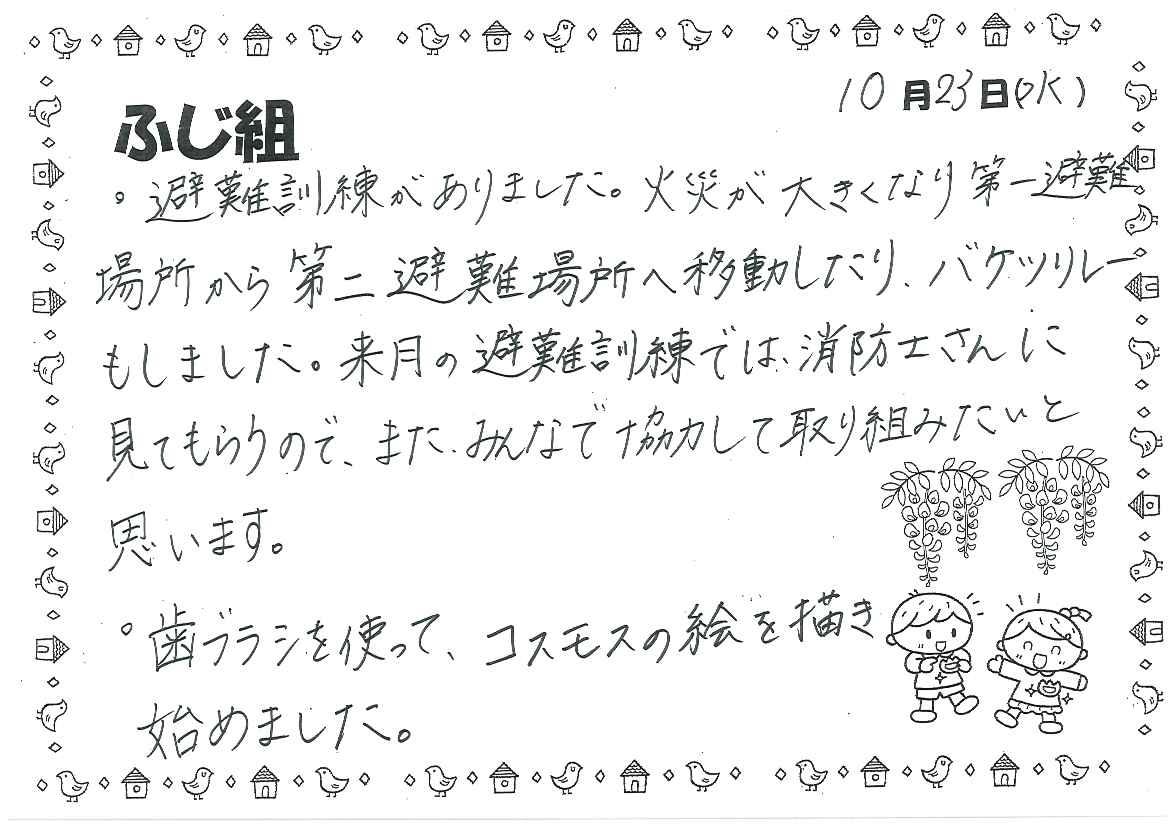 10月23日(水)
ふじ組
。避難訓練がありました。火災が大きくなり第一避難
場所から第二避難場所へ移動したり、バケツリレー
もしました。来月の避難訓練では、消防士さんに
見てもらうので、また、みんなで協力して取り組みたいと
思います。
。歯ブラシを使って、コスモスの絵を描き
始めました。